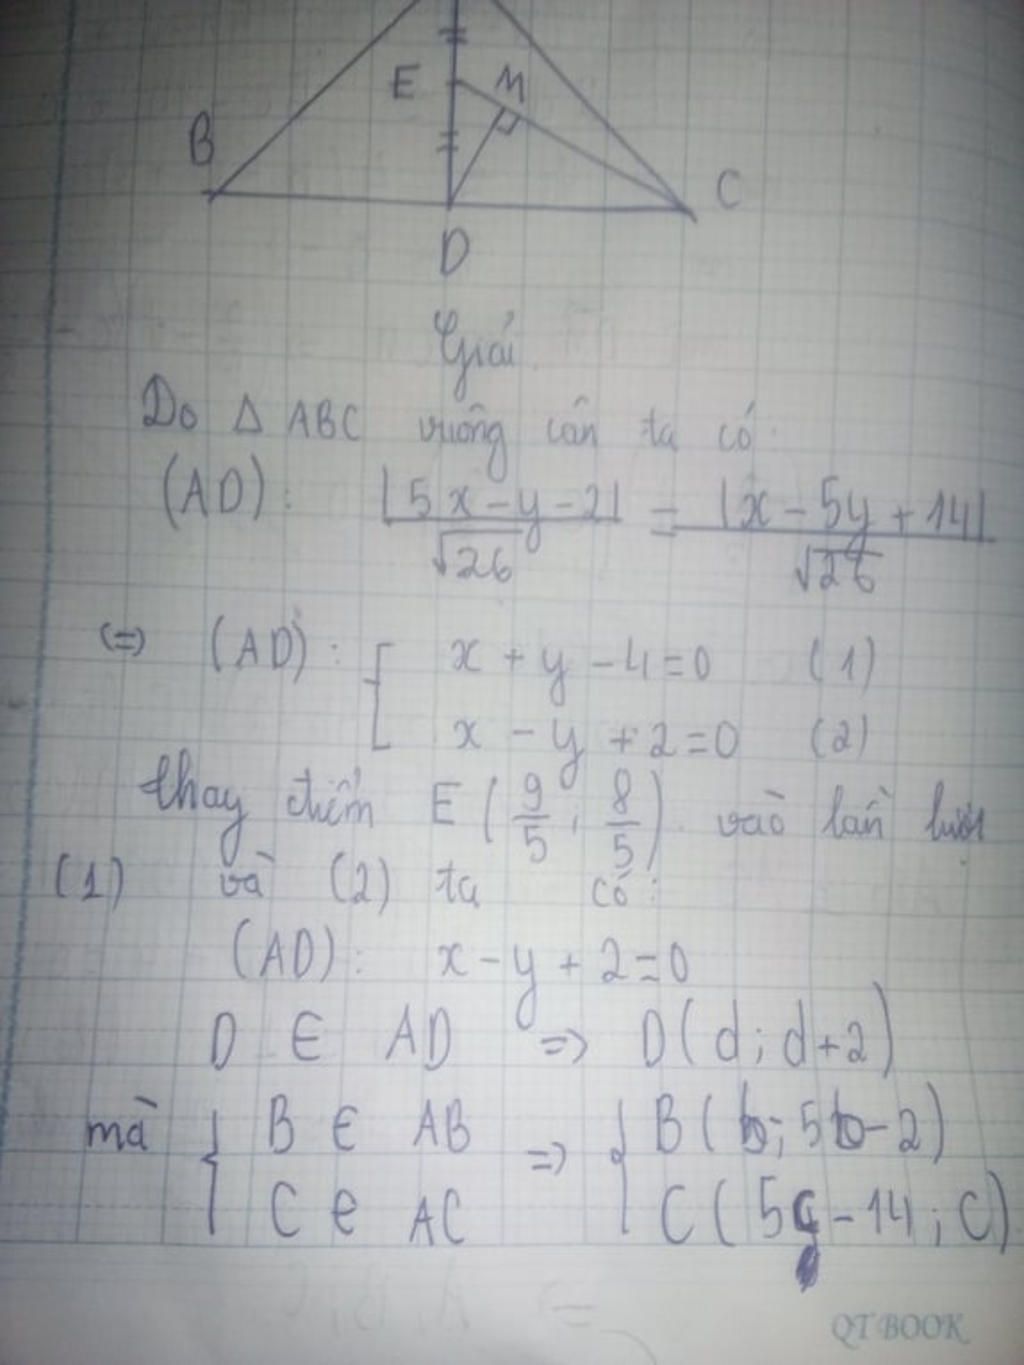 E M
B
C
D
Giải
Do Δ ABC vuông cân ta có
(AD): |5x-y-2|/√26 = |x-5y+14|/√26
(=) (AD): [ x+y-4=0 (1)
x-y+2=0 (2)
thay điểm E(9/5; 8/5) vào lần lượt
(1) và (2) ta có:
(AD): x-y+2=0
D ∈ AD => D(d; d+2)
mà { B ∈ AB => { B(b; 5b-2)
C ∈ AC C(5c-14; c)
QT BOOK